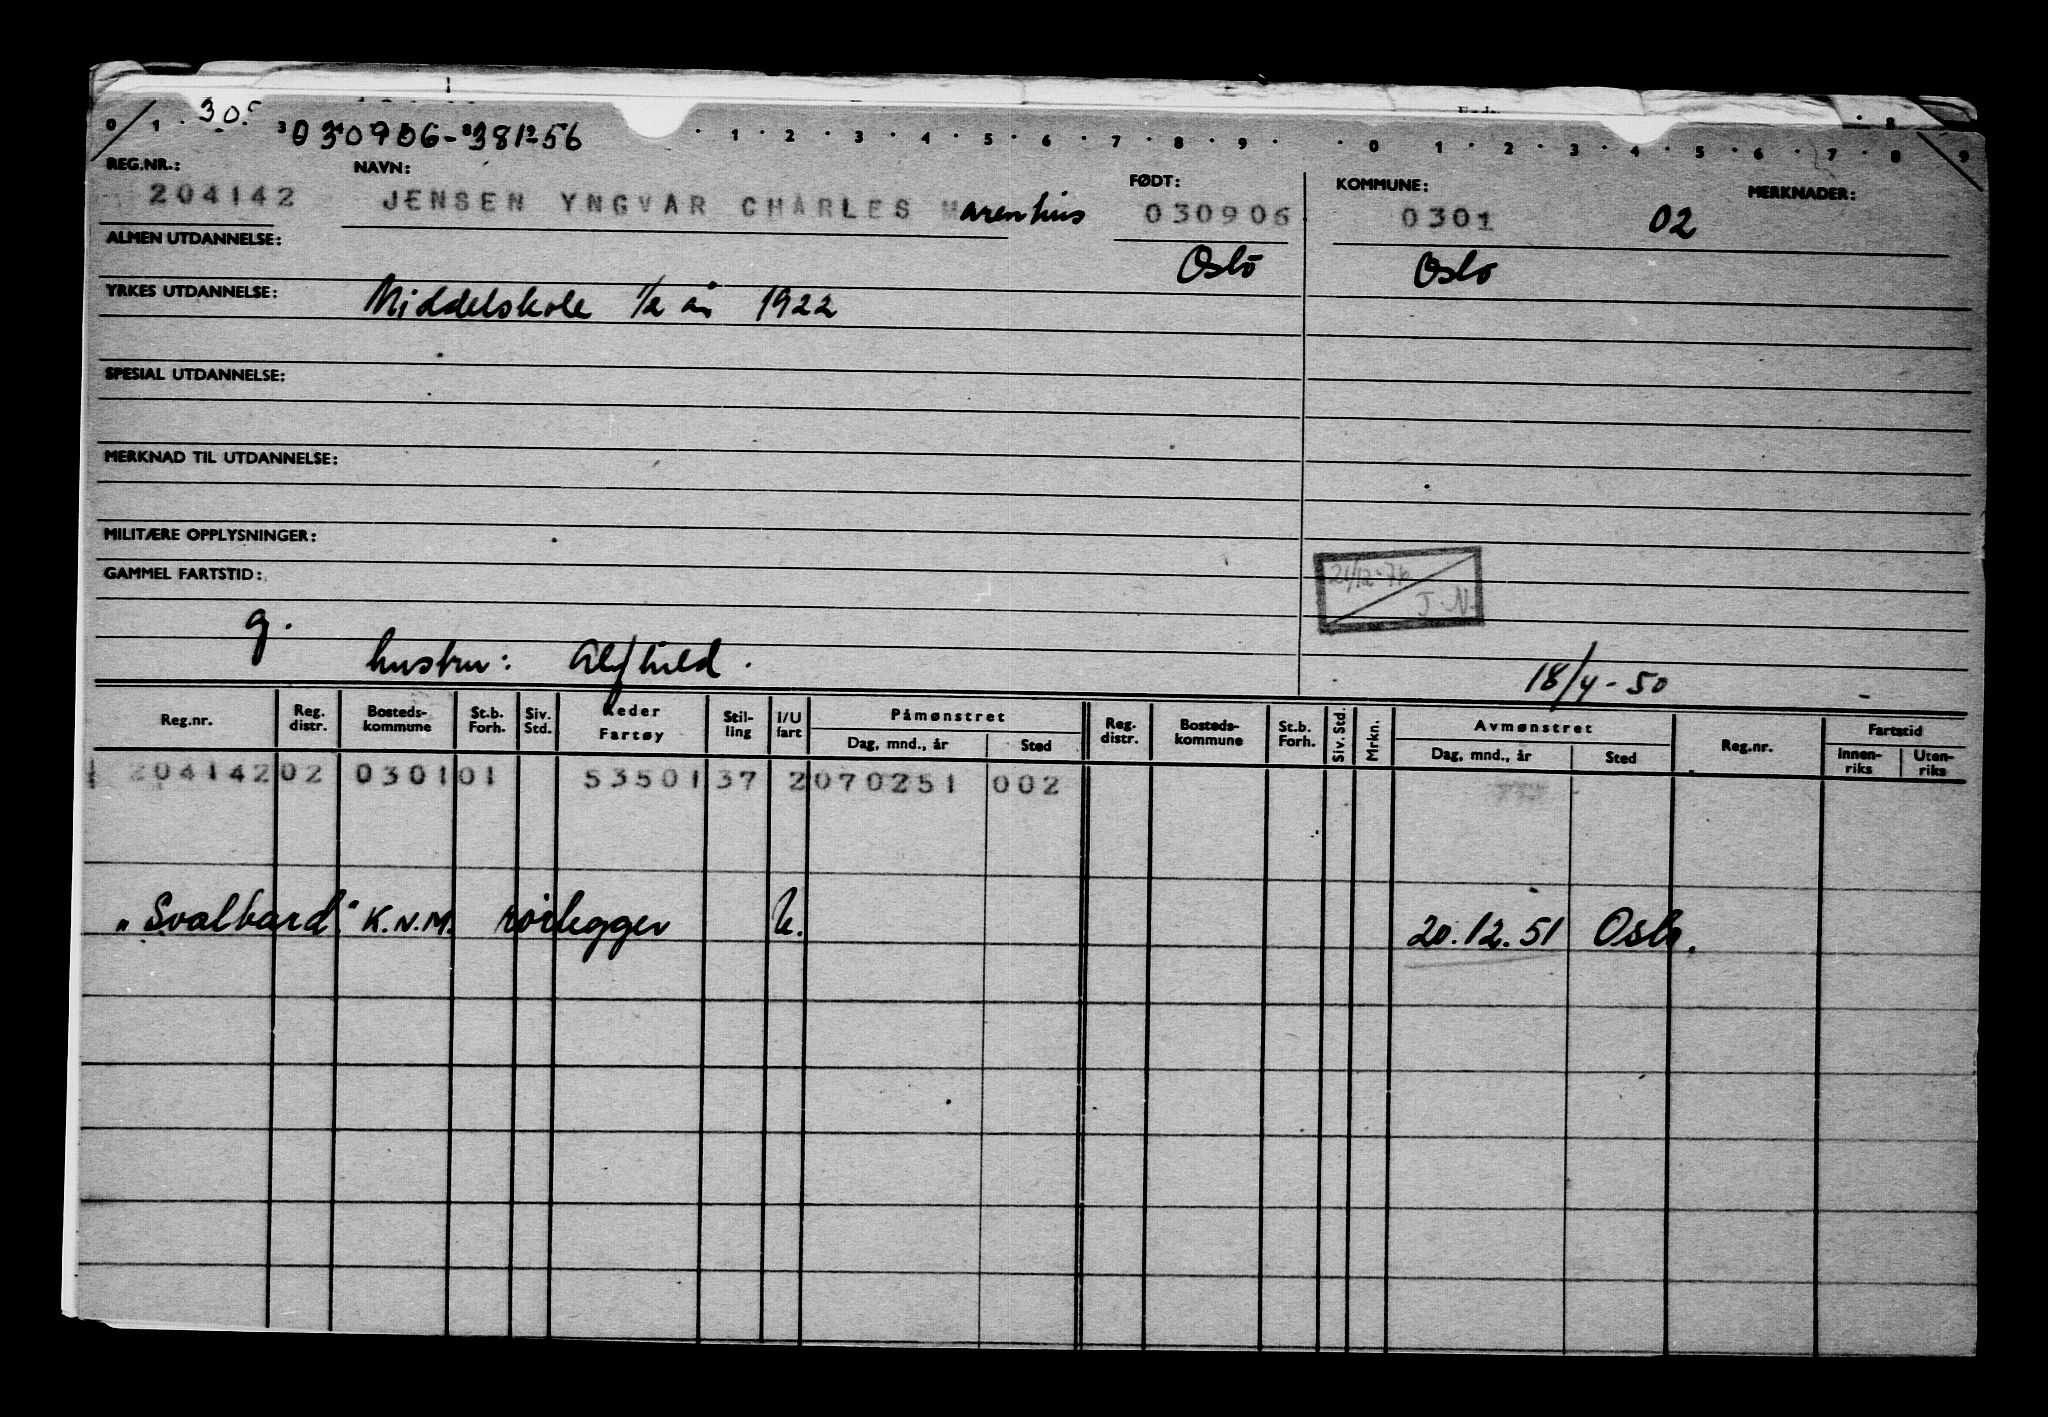 0 1 30
030906-38156
1 2 3 4 5 6 7 8 9 0 1 2 3 4 5 6 7 8 9
REG.NR.: NAVN: FØDT: KOMMUNE: MERKNADER:
204142 JENSEN YNGVAR CHARLES Marenhius 030906 0301 02
ALMEN UTDANNELSE: Oslo Oslo
YRKES UTDANNELSE: Middelskole 1/2 år 1922
SPESIAL UTDANNELSE:
MERKNAD TIL UTDANNELSE:
MILITÆRE OPPLYSNINGER:
GAMMEL FARTSTID:
21/12-71
J.N.
g.
hustru: Alfhild.
18/4-50
Reg.nr. Reg. distr. Bosteds-kommune St.b. Forh. Siv. Std. Reder Fartøy Stil-ling I/U fart Påmønstret Dag, mnd., år Sted Reg. distr. Bosteds-kommune St.b. Forh. Siv. Std. Mrkn. Avmønstret Dag, mnd., år Sted Reg.nr. Fartstid Innen-riks Uten-riks
204142 02 0301 01 53501 37 2 070251 002
"Svalbard" K.N.M. rørlegger U. 20.12.51 Oslo.